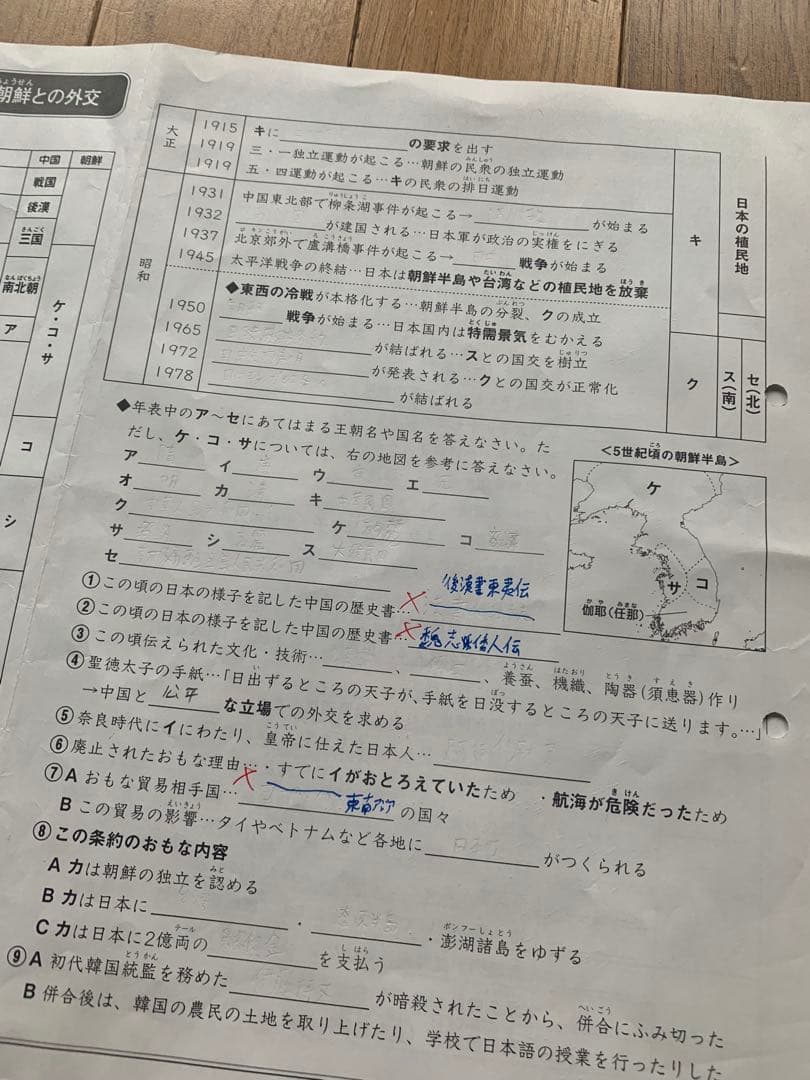 朝鮮との外交
ちょうせん
中国 朝鮮
戦国
後漢
三国
さんごく
南北朝
なんぼくちょう
ア
ケ・コ・サ
コ
シ
大正
1915 キに の要求を出す
1919 三・一独立運動が起こる…朝鮮の民衆の独立運動
1919 五・四運動が起こる…キの民衆の排日運動
昭和
1931 中国東北部で柳条湖事件が起こる→ が始まる
1932 が建国される…日本軍が政治の実権をにぎる
1937 北京郊外で盧溝橋事件が起こる→ 戦争が始まる
1945 太平洋戦争の終結…日本は朝鮮半島や台湾などの植民地を放棄
◆東西の冷戦が本格化する…朝鮮半島の分裂、クの成立
1950 戦争が始まる…日本国内は特需景気をむかえる
1965 が結ばれる…スとの国交を樹立
1972 が発表される…クとの国交が正常化
1978 が結ばれる
キ
ク
日本の植民地
ス(南)
セ(北)
◆年表中のア〜セにあてはまる王朝名や国名を答えなさい。た
だし、ケ・コ・サについては、右の地図を参考に答えなさい。
ア イ ウ エ
オ 明 カ 清 キ
ク ケ コ
サ シ ス
セ
<5世紀頃の朝鮮半島>
ケ
サ コ
伽耶(任那)
①この頃の日本の様子を記した中国の歴史書… 後漢書東夷伝
②この頃の日本の様子を記した中国の歴史書… 魏志倭人伝
③この頃伝えられた文化・技術… 、 、養蚕、機織、陶器(須恵器)作り
④聖徳太子の手紙…「日出ずるところの天子が、手紙を日没するところの天子に送ります。…」
→中国と 公平 な立場での外交を求める
⑤奈良時代にイにわたり、皇帝に仕えた日本人…
⑥廃止されたおもな理由…・すでにイがおとろえていたため ・航海が危険だったため
⑦A おもな貿易相手国… 東南アジア の国々
B この貿易の影響…タイやベトナムなど各地に 日本町 がつくられる
⑧この条約のおもな内容
A カは朝鮮の独立を認める
B カは日本に ・ ・澎湖諸島をゆずる
C カは日本に2億両の を支払う
⑨A 初代韓国統監を務めた 伊藤博文 が暗殺されたことから、併合にふみ切った
B 併合後は、韓国の農民の土地を取り上げたり、学校で日本語の授業を行ったりした